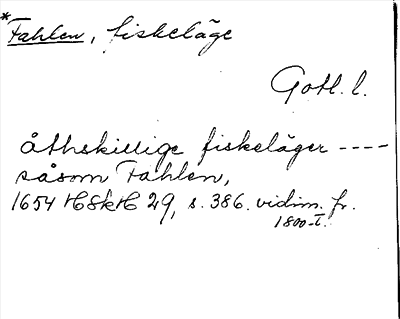 *Fahlen, fiskeläge
Gotl. l.
åthskillige fiskeläger ----
såsom Fahlen,
1654 HSkH 29, s. 386. vidim. fr.
1800-t.